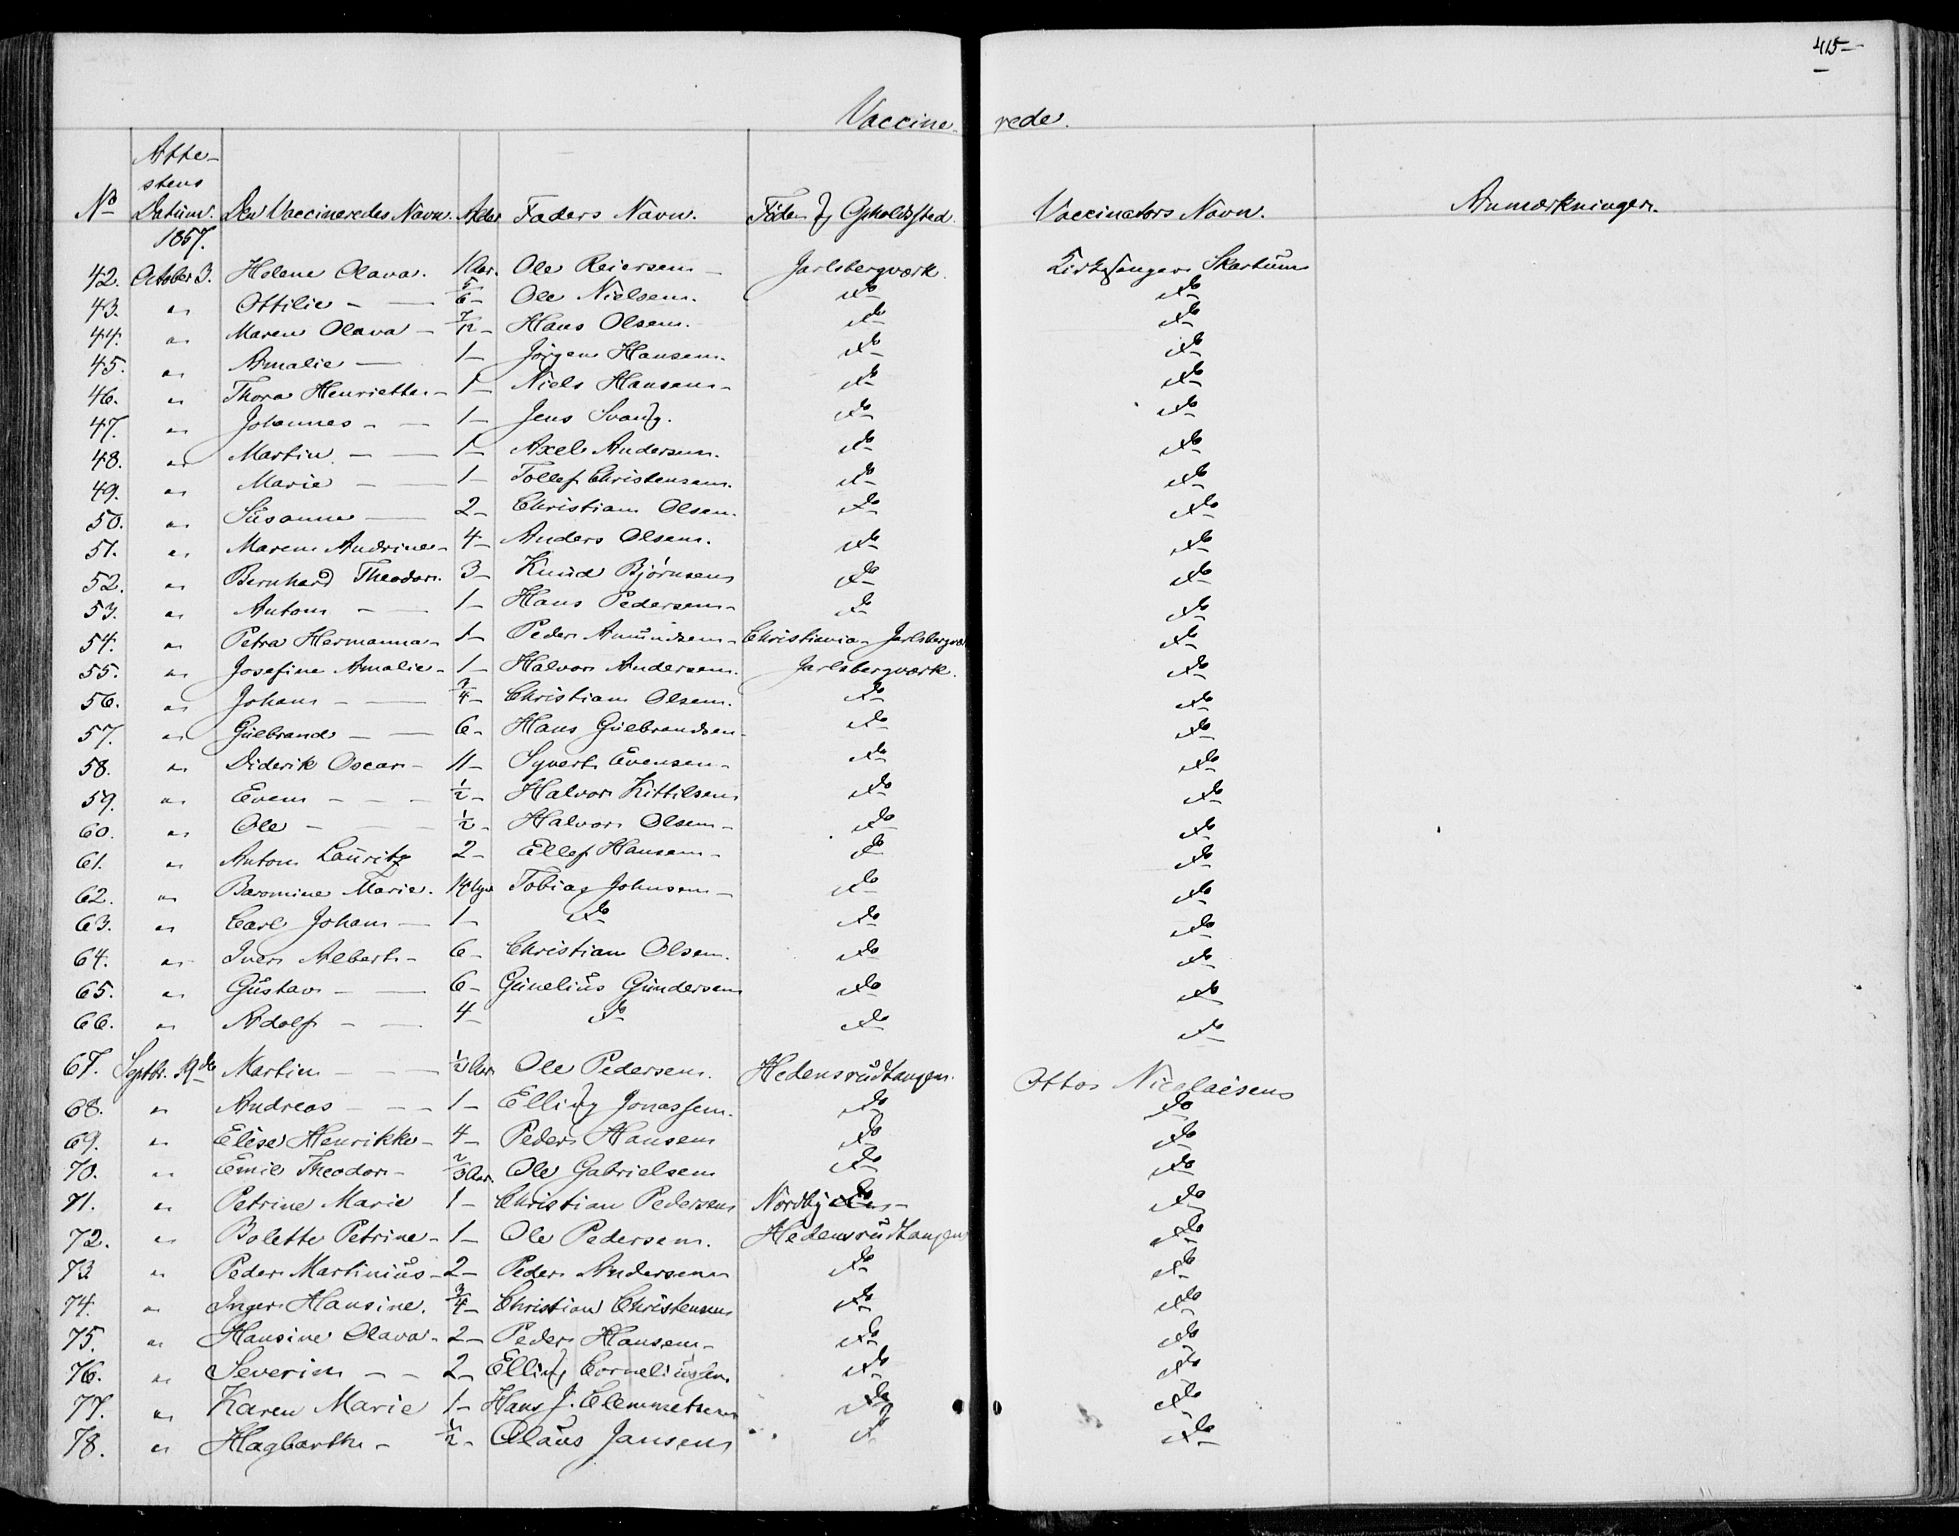 415
Vaccinerede.
No Attestens Datum. Den Vaccineredes Navn. Alder Faders Navn. Føde og Opholdssted. Vaccinators Navn. Anmærkninger.
1857.
42. October 3. Helene Olava. 1 Aar. Ole Reiersen Jarlsbergværk Kirkesanger Skartum
43. " Ottilie - 5/6 - Ole Nielsen. do do
44. " Maren Olava - 7/12 - Hans Olsen. do do
45. " Amalie - 1 - Jørgen Hansen. do do
46. " Thora Henriette - 1 - Niels Hansen - do do
47. " Johannes - 1 - Jens Svang. do do
48. " Martin - 1 - Axel Andersen. do do
49. " Marie - 1 - Tollef Christensen. do do
50. " Susanne - 2 - Christian Olsen. do do
51. " Maren Andrine - 4 - Anders Olsen. do do
52. " Bernhard Theodor. 3 - Knud Bjørnsen do do
53. " Anton - 1 - Hans Pedersen - do do
54. " Petra Hermanna - 1 - Peder Amundsen - Christiania - Jarlsbergvær do
55. " Josefine Amalie - 1 - Halvor Andersen. Jarlsbergværk. do
56. " Johan - 3/4 - Christian Olsen. do do
57. " Gulbrand - 6 - Hans Gulbrandsen - do do
58. " Diderik Oscar - 11 - Syvert Evensen - do do
59. " Even - 1/2 - Halvor Kittilsen do do
60. " Ole - 1/2 - Halvor Olsen - do do
61. " Anton Lauritz 2 - Ellef Hansen - do do
62. " Marie. Tobias Johnsen - do do
63. " Carl Johan - 1 - do do do
64. " Iver Albert - 6 - Christian Olsen. do do
65. " Gustav - 6 - Gunelius Gundersen do do
66. " Adolf - 4 - do do do
67. Septbr. 19de Martin - 1/2 Aar Ole Pedersen. Hedensrudtangen. Otto Nicolaisen
68. " Andreas - 1 - Elling Jonassen. do do
69. " Elise Henrikke - 4 - Peder Hansen do do
70. " Emil Theodor - 2/3 Aar. Ole Gabrielsen do do
71. " Petrine Marie 1 - Christian Pedersen Nordby do
72. " Bolette Petrine - 1 - Ole Pedersen. Hedensrudtangen do
73 " Peder Martinius - 2 - Peder Andersen do do
74. " Inger Hansine. 3/4 - Christian Christensen do do
75. " Hansine Olava - 2 - Peder Hansen - do do
76. " Severin - - 2 - Elling Corneliussen do do
77. " Karen Marie 1 - Hans J. Clemmetsen do do
78. " Hagbarth - 1/2 - Claus Jansen do do